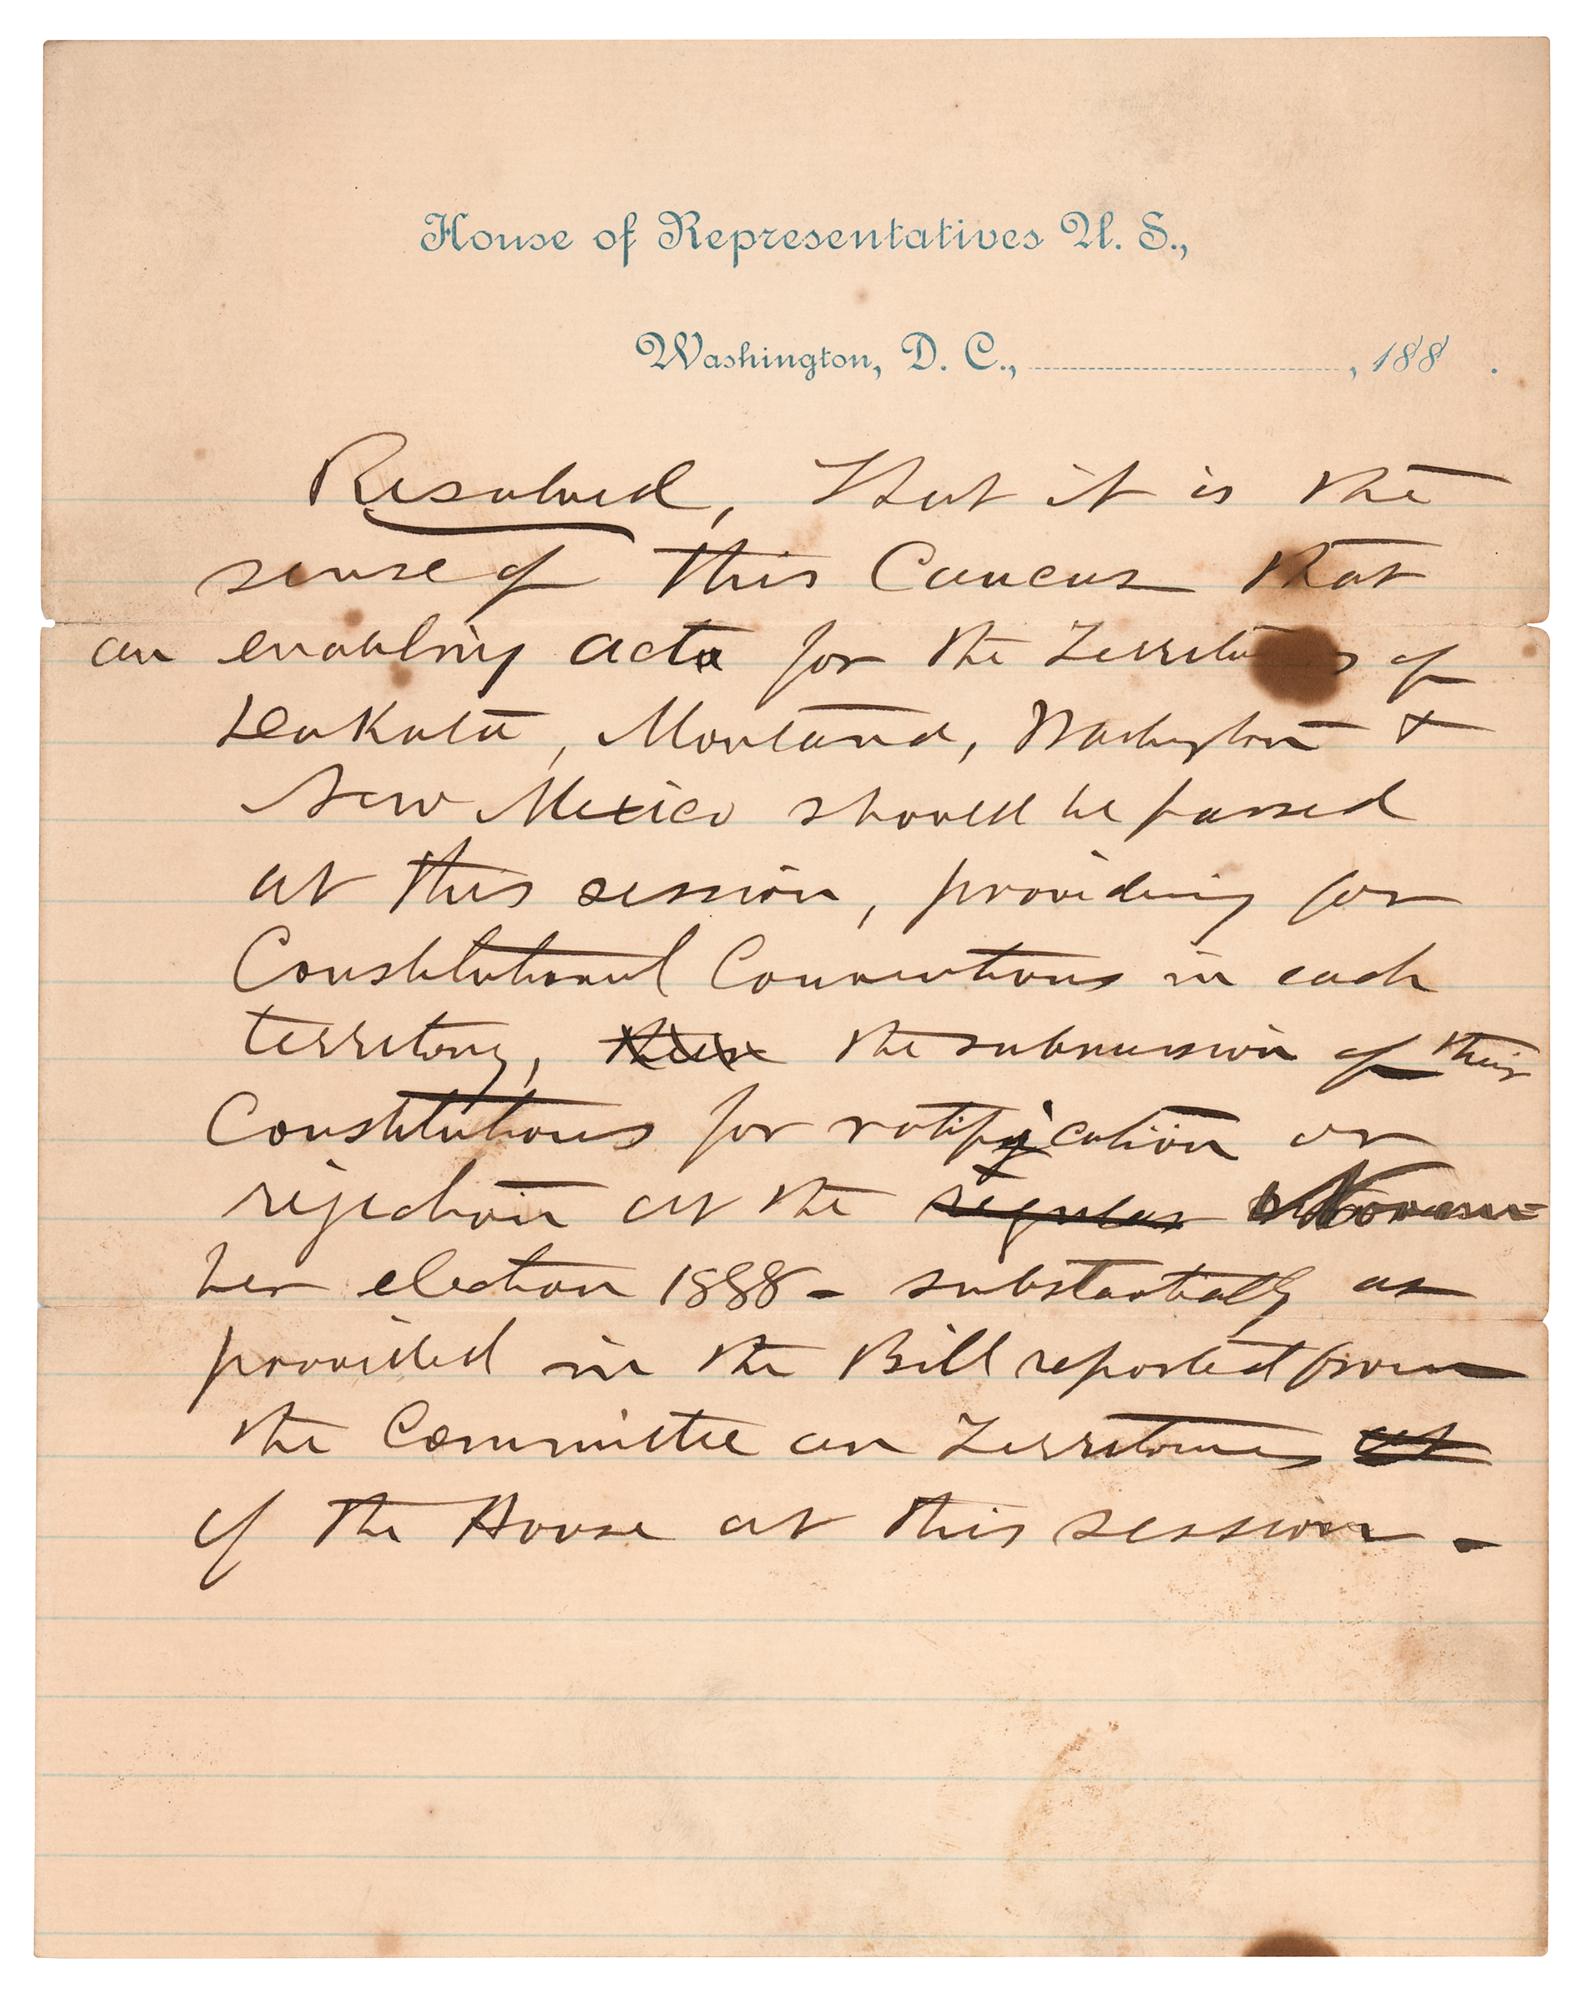 House of Representatives U. S.,
Washington, D. C., , 188 .
Resolved, That it is the
sense of this Caucus that
an enabling act for the Territories of
Dakota, Montana, Washington &
New Mexico should be passed
at this session, providing for
Constitutional Conventions in each
territory, the submission of their
Constitutions for ratification or
rejection at the regular Novem=
ber election 1888 - substantially as
provided in the Bill reported from
the Committee on Territories
of the House at this session.